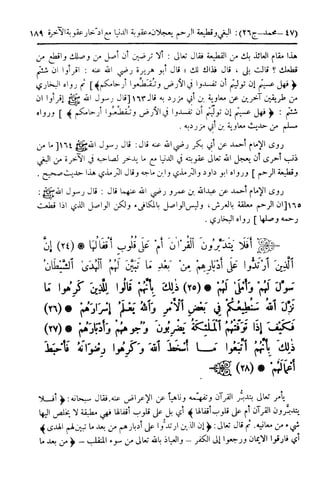 (٤٧ – محمد – ج٢٦): البغي وقطيعة الرحم يعجلان عقوبة الدنيا مع ادخار عقوبة الآخرة ١٨٩
هذا مقام العائذ بك من القطيعة فقال تعالى : ألا ترضين أن أصل من وصلك وأقطع من
قطعك ؟ قالت بلى ، قال فذاك لك ، قال أبو هريرة رضي الله عنه : اقرأوا إن شئتم
﴿ فهل عسيتم إن توليتم أن تفسدوا في الأرض وتقطعوا أرحامكم ﴾ ] ثم رواه البخاري
من طريقين آخرين عن معاوية بن أبي مزرد به قال ١٦٣[ قال رسول الله ﷺ [ إقرأوا إن
شئتم : ﴿ فهل عسيتم إن توليتم أن تفسدوا في الأرض وتقطعوا أرحامكم ﴾ ] ورواه
مسلم من حديث معاوية بن أبي مزرد به .
روى الإمام أحمد عن أبي بكر رضي الله عنه قال : قال رسول الله ﷺ ١٦٤[ ما من
ذنب أحرى أن يعجل الله تعالى عقوبته في الدنيا مع ما يدخر لصاحبه في الآخرة من البغي
وقطيعة الرحم ] ورواه ابو داود والترمذي وابن ماجه وقال الترمذي هذا حديث صحيح .
روى الإمام أحمد عن عبدالله بن عمرو رضي الله عنهما قال : قال رسول الله ﷺ :
١٦٥[ إن الرحم معلقة بالعرش ، وليس الواصل بالمكافىء ولكن الواصل الذي اذا قطعت
رحمه وصلها ] رواه البخاري .
﴿ أَفَلَا يَتَدَبَّرُونَ ٱلْقُرْءَانَ أَمْ عَلَىٰ قُلُوبٍ أَقْفَالُهَا ﴾ (٢٤) إِنَّ
ٱلَّذِينَ ٱرْتَدُّوا۟ عَلَىٰ أَدْبَٰرِهِم مِّنۢ بَعْدِ مَا تَبَيَّنَ لَهُمُ ٱلْهُدَى ٱلشَّيْطَٰنُ
سَوَّلَ لَهُمْ وَأَمْلَىٰ لَهُمْ ﴾ (٢٥) ذَٰلِكَ بِأَنَّهُمْ قَالُوا۟ لِلَّذِينَ كَرِهُوا۟ مَا
نَزَّلَ ٱللَّهُ سَنُطِيعُكُمْ فِى بَعْضِ ٱلْأَمْرِ وَٱللَّهُ يَعْلَمُ إِسْرَارَهُمْ ﴾ (٢٦)
فَكَيْفَ إِذَا تَوَفَّتْهُمُ ٱلْمَلَٰٓئِكَةُ يَضْرِبُونَ وُجُوهَهُمْ وَأَدْبَٰرَهُمْ ﴾ (٢٧)
ذَٰلِكَ بِأَنَّهُمُ ٱتَّبَعُوا۟ مَآ أَسْخَطَ ٱللَّهَ وَكَرِهُوا۟ رِضْوَٰنَهُۥ فَأَحْبَطَ
أَعْمَٰلَهُمْ ﴾ (٢٨)
يأمر تعالى بتدبر القرآن وتفهمه وناهياً عن الإعراض عنه ، فقال سبحانه : ﴿ أفلا
يتدبرون القرآن أم على قلوب أقفالها ﴾ أي بل على قلوب أقفالها فهي مطبقة لا يخلص اليها
شيء من معانيه . ثم قال تعالى : ﴿ إن الذين ارتدوا على أدبارهم من بعد ما تبين لهم الهدى ﴾
أي فارقوا الايمان ورجعوا إلى الكفر – والعياذ بالله تعالى من سوء المنقلب – ﴿ من بعد ما